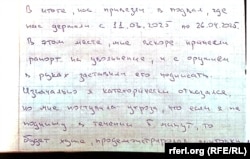 В итоге, нас привезли в подвал, где
нас держали с 11.04.2025 по 26.04.2025.
В этом месте, мне вскоре принесли
рапорт на увольнение, и с оружием
в руках заставляли его подписать.
Изначально я категорически отказался,
но мне поступила угроза, что если я не
подпишу в течении 5 минут, то
будет
rferl.org (RFE/RL)